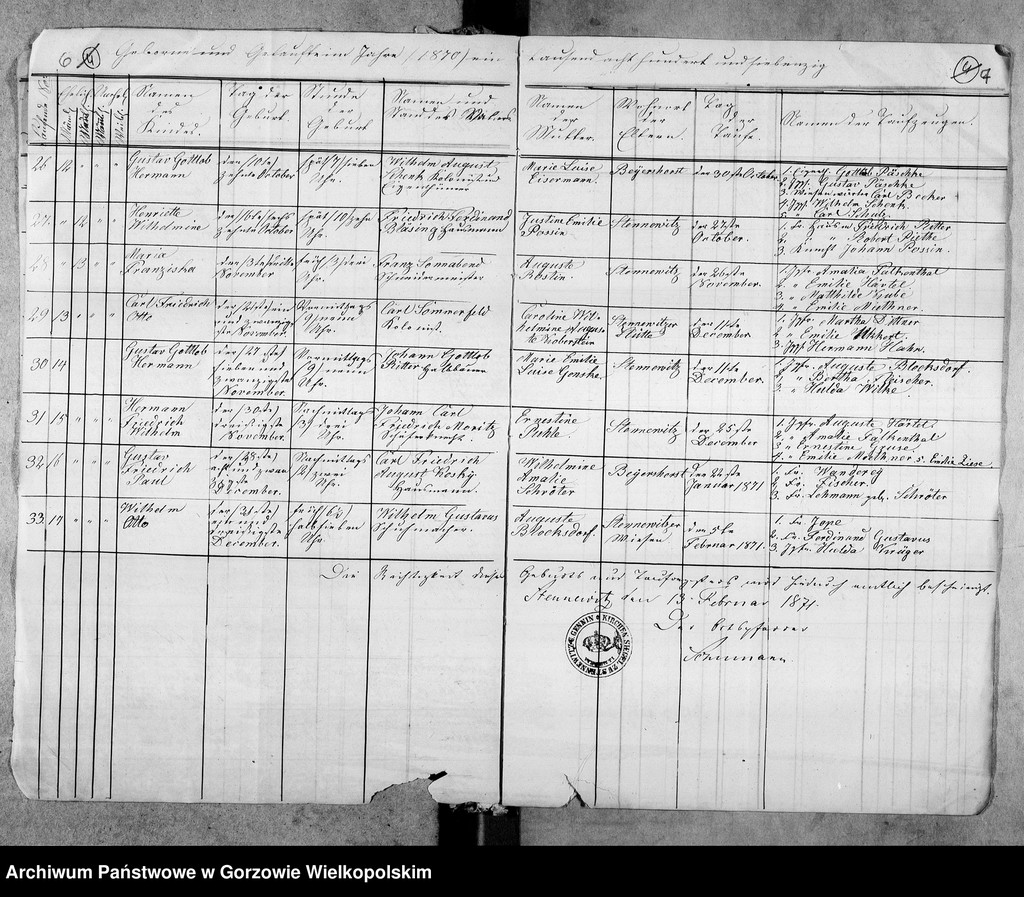 6
Geborne und Getaufte im Jahre (1870) ein tausend acht hundert und siebenzig
7
Laufende No
Ehelich
Männl.
Weibl.
Unehel.
Männl.
Weibl.
Namen des Kindes.
Tag der Geburt.
Stunde der Geburt
Namen und Stand des Vaters
Namen der Mutter.
Wohnort der Eltern.
Tag der Taufe.
Namen der Taufzeugen.
26 12 " " "
Gustav Gottlob
Hermann
den (10te)
zehnte October
(7) sieben
Uhr.
Wilhelm August
Schenk Kolonist u
Eigenthümer
Marie Luise
Eisermann.
Beyershorst
den 30ste October
Gottlob Päschke
2. Gustav Päschke
3. Carl Becker
4. Wilhelm Schenk.
5. " Carl Schulz
27. " 12 " "
Henriette
Wilhelmine
den (16te) sechs
zehnte October
(10) zehn
Uhr.
Friedrich Ferdinand
Bläsing Hausmann
Justine Emilie
Possin
Stennewitz
den 27ste
October.
Friedrich Ritter
2. " Robert Piethe
3. Johann Possin.
28 " 13 " "
Maria
Franziska
den (3te) dritte
November
früh (3) drei
Uhr.
Franz Sonnabend
Schneidermeister
Auguste
Rostin
Stennewitz
den 26ste
November.
1. Jgfr. Amalia Falkenthal
2. " Emilie Härtel
3. " Matthilde
4. " Emilie Moethner
29 13 " " "
Carl Friedrich
Otto
Vormittags
(9) neun
Uhr.
Carl Sommerfeld
Kolonist.
Caroline Wil-
helmine Augus-
te Bieberstein
Stennewitzer
Hütte
den 11te
December
1. Jgfr. Martha Dittner
2. " Emilie
3. Hermann Hahn.
30 14
Gustav Gottlob
Hermann
den (27ste)
sieben und
zwanzigste
November.
Vormittags
(9) neun
Uhr.
Johann Gottlob
Ritter
Marie Emilie
Luise Genske.
Stennewitz
den 11te
December.
1. Jgfr. Auguste Blocksdorf.
2. " Bertha Fleischer.
3. " Hulda Wilke.
31 15 " " "
Hermann
Friedrich
Wilhelm
den (30te)
dreißigste
November.
Nachmittags
(3) drei
Uhr.
Johann Carl
Friedrich Moritz
Schäferknecht.
Ernestine
Puhle.
Stennewitz
den 25ste
December
1. Jgfr. Auguste Härtel
2. " Amalie Falkenthal
3. " Ernestine
4. " Emilie Moethner 5. Emilie Ziese
32 16 " " "
Gustav
Friedrich
Paul
den (28te)
acht und zwan
zigste
December.
Nachmittags
(2) zwei
Uhr.
Carl Friedrich
August Kosky
Hausmann.
Wilhelmine
Amalie
Schröter
Beyershorst
den 22ste
Januar 1871
1. Fr. Wanderey
2. Fr. Fischer.
3. Fr. Lehmann geb. Schröter
33. 17 " " "
Wilhelm
Otto
December.
früh (6½)
halb sieben
Uhr.
Wilhelm Gustavus
Schuhmacher.
Auguste
Blocksdorf.
Stennewitzer
Wiesen
den 5te
Februar 1871.
1. Fr. Jope
2. Fr. Ferdinand Gustavus
3. Jgfr. Hulda Krüger
Die Richtigkeit dieses Geburts und Taufregisters wird hiedurch amtlich bescheinigt.
Stennewitz den 13 Februar 1871.
Der Ortspfarrer
Archiwum Państwowe w Gorzowie Wielkopolskim